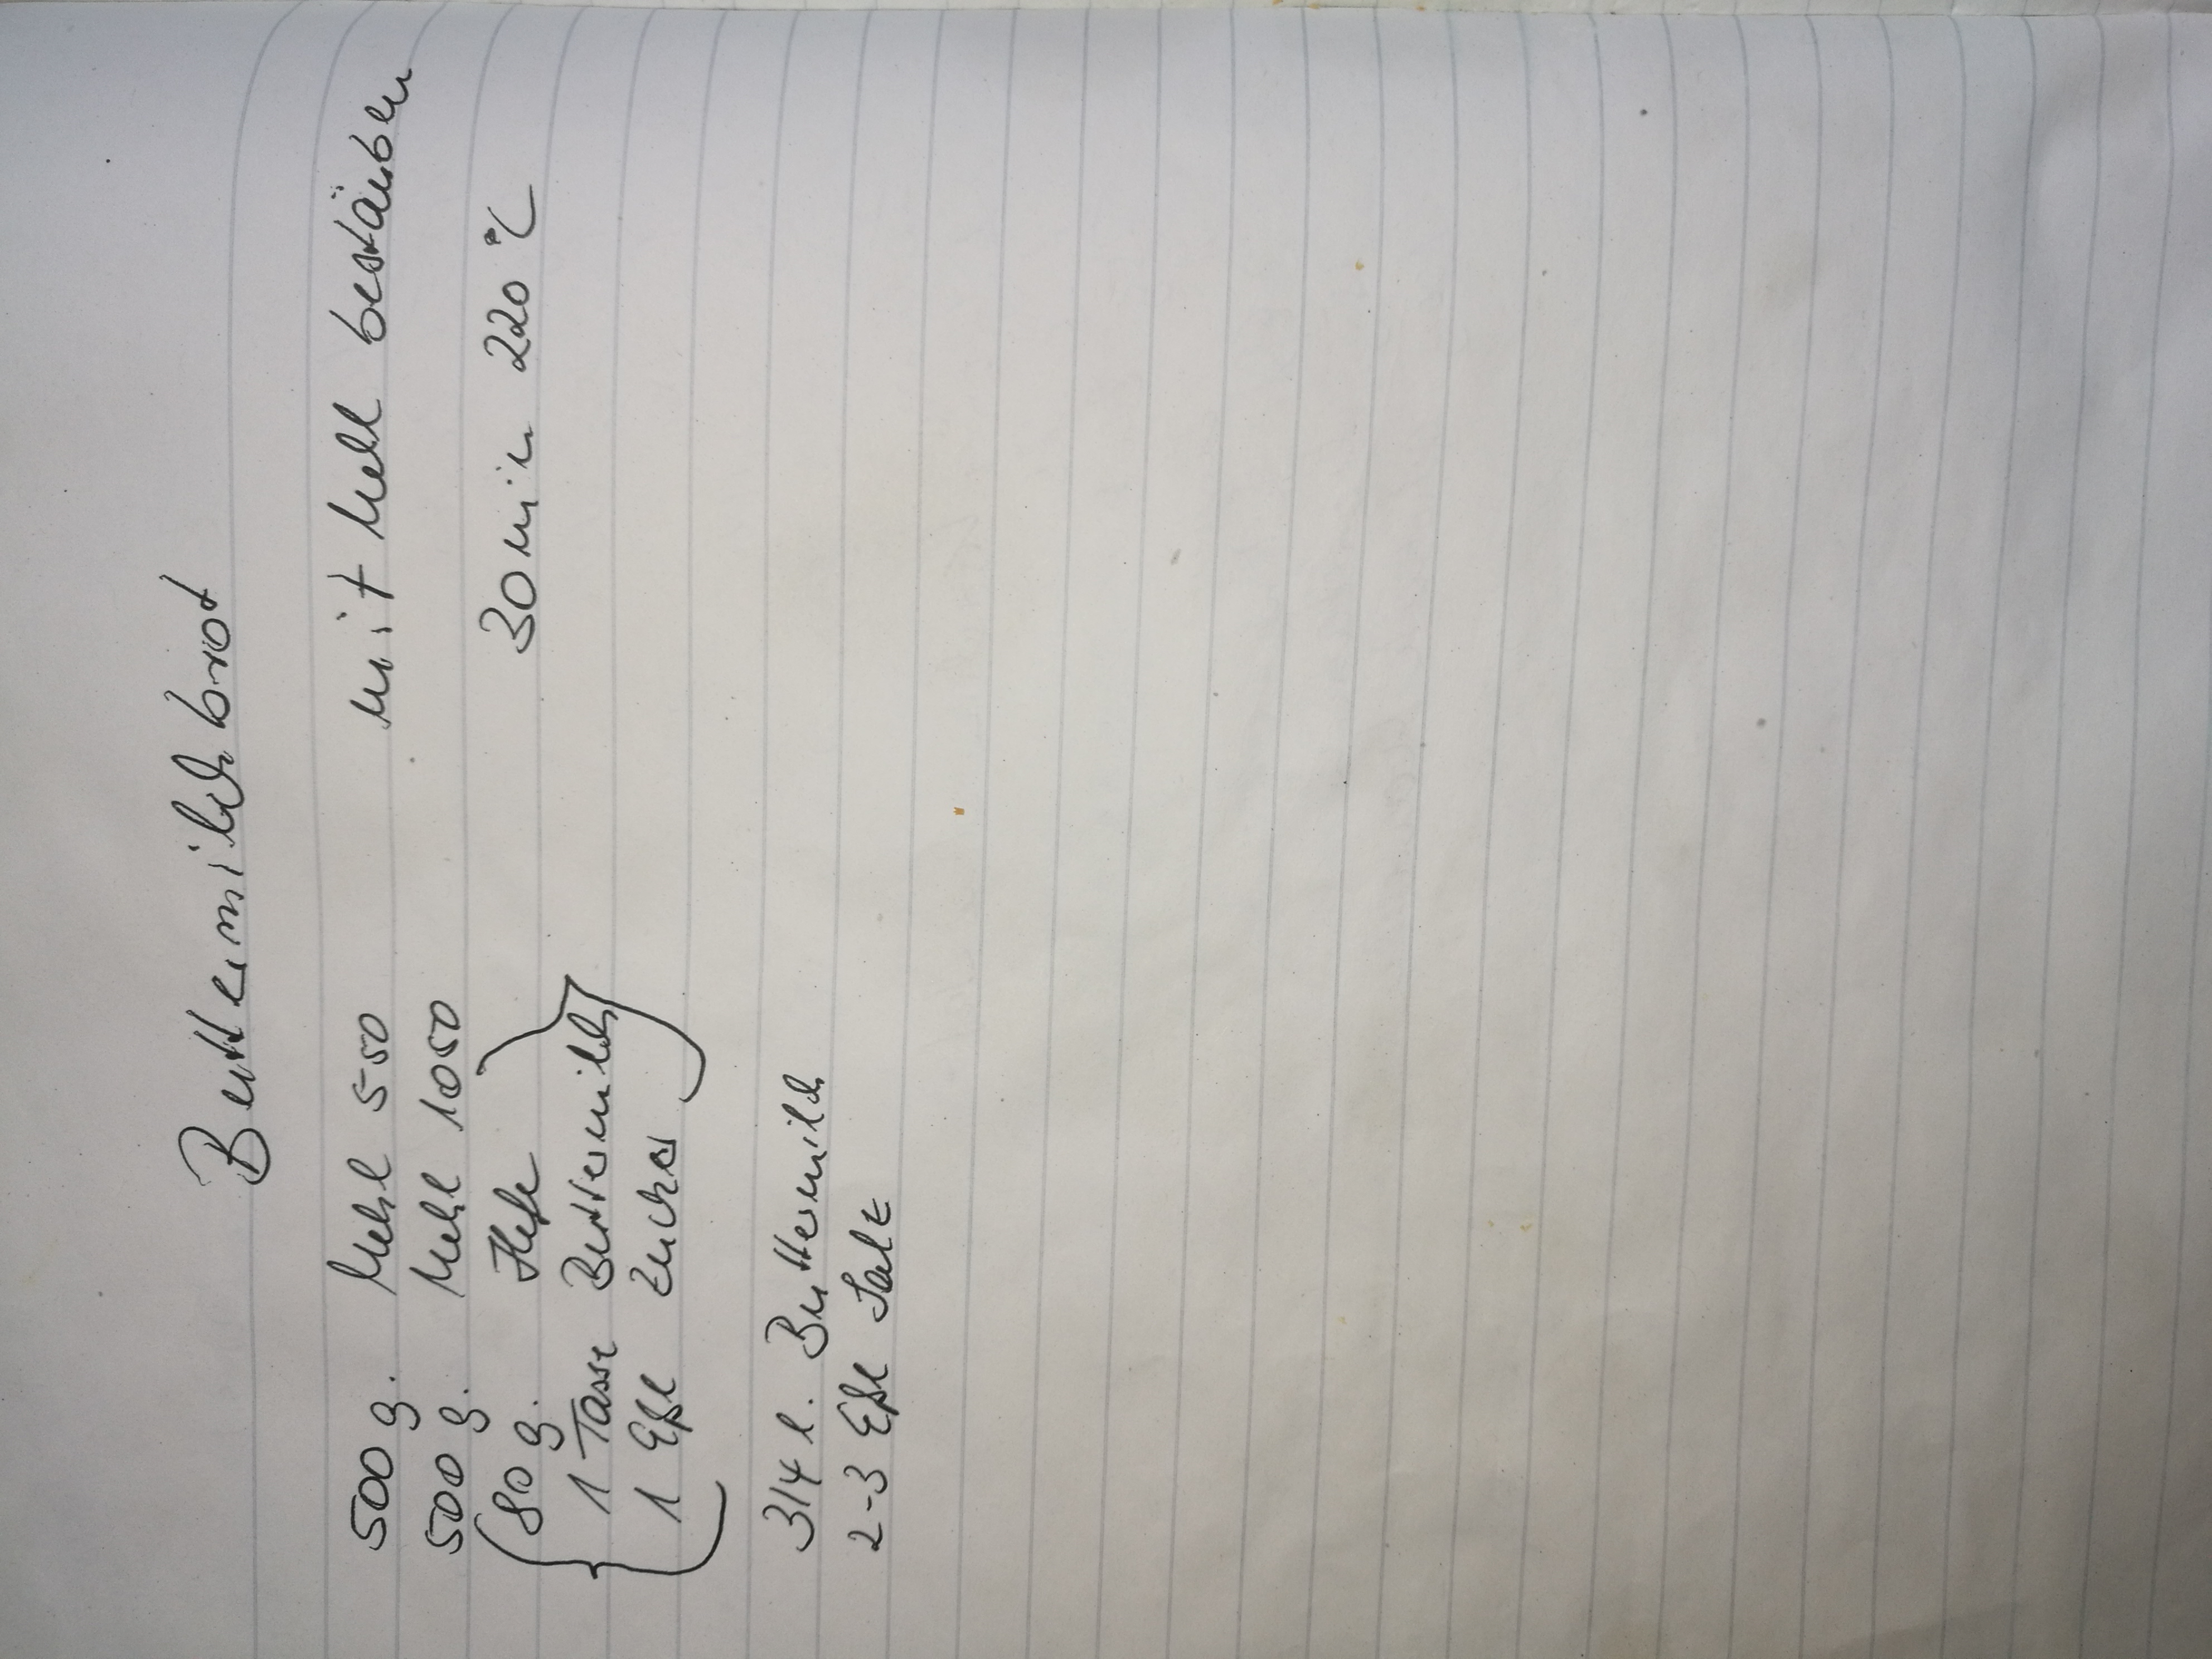 Buttermilchbrot
500 g. Mehl 550
500 g. Mehl 1050
80 g. Hefe
1 Tasse Buttermilch
1 Eßl Zucker
3/4 l. Buttermilch
2-3 Eßl Salz
mit Mehl bestäuben
30 min 220 °C